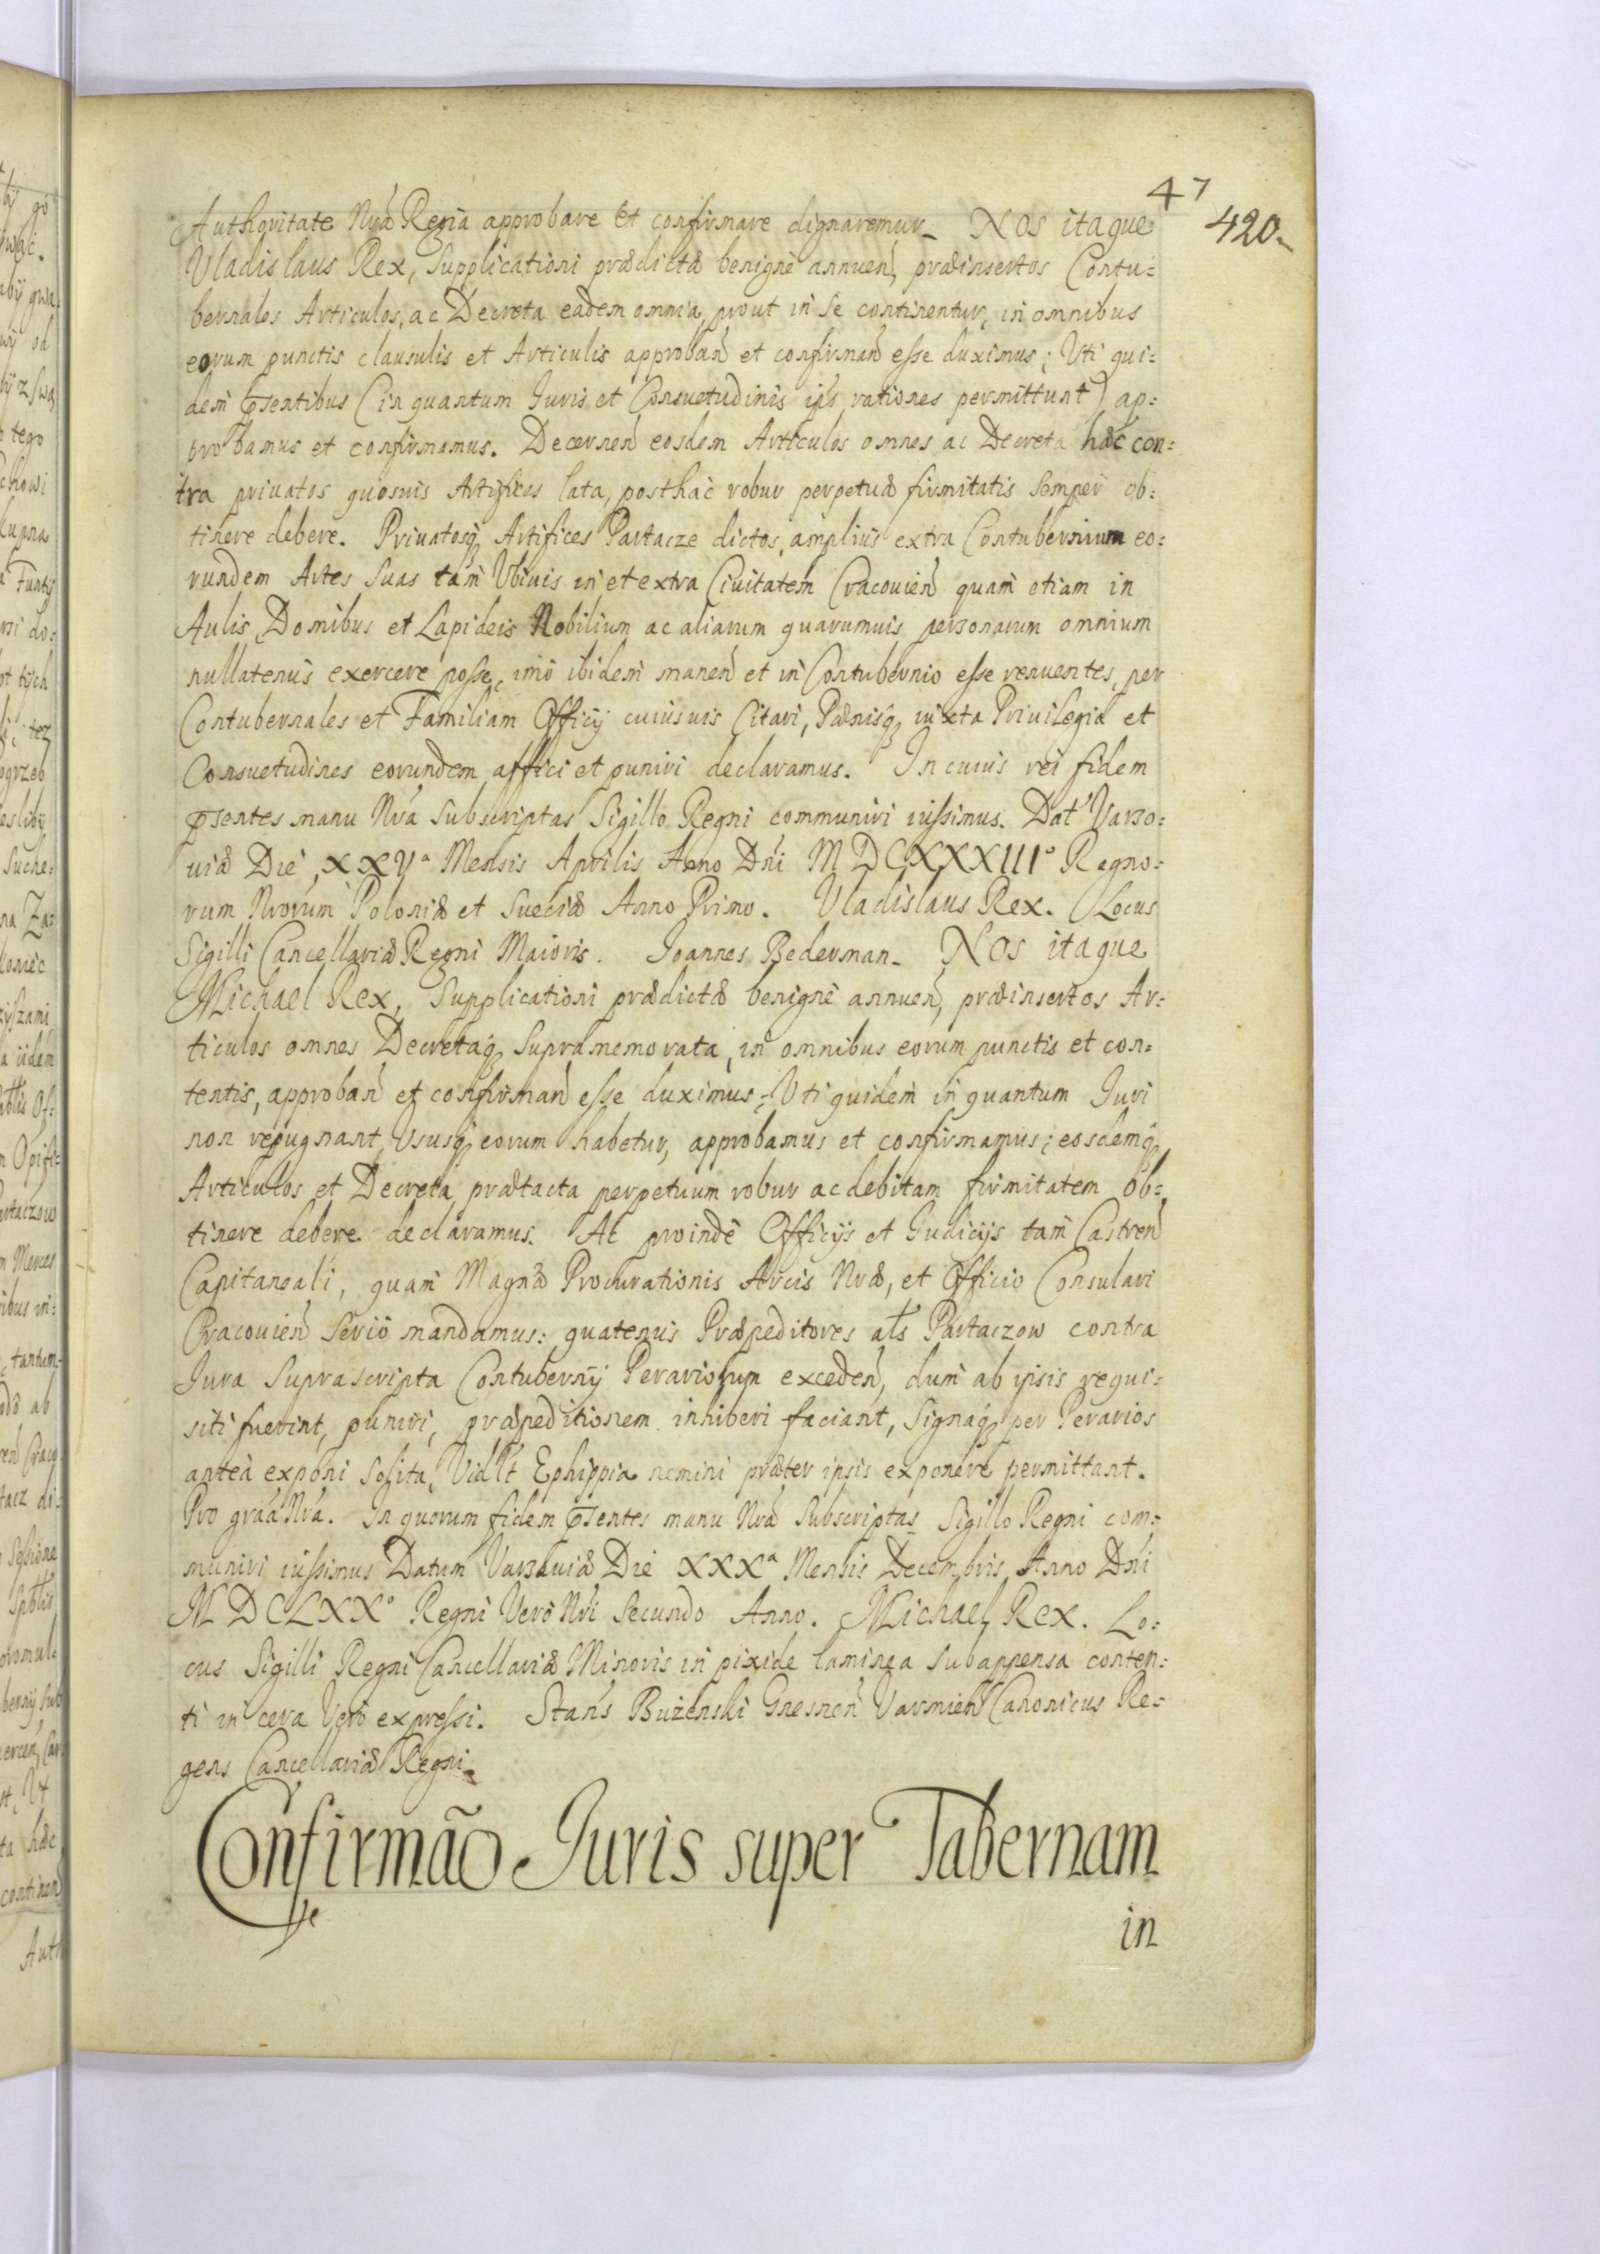 47
420.
Authoritate Nrã Regia approbare et confirmare dignaremur. NOS itaque
Vladislaus Rex, Supplicationi prædictæ benignè annuen, præinsertos Contu-
bernales Articulos, ac Decreta eadem omnia, prout in se continentur, in omnibus
eorum punctis clausulis et Articulis approban et confirman esse duximus; Uti qui-
dem pñsentibus (in quantum Iuris et Consuetudinis ipsis rationes permittunt) ap-
probamus et confirmamus. Decernen eosdem Articulos omnes ac Decreta hæc con-
tra priuatos quosuis Artifices lata, posthac robur perpetuæ firmitatis semper ob-
tinere debere. Priuatosq Artifices Partacze dictos, amplius extra Contubernium eo-
rundem Artes suas tam Vbiuis in et extra Ciuitatem Cracouien quam etiam in
Aulis Domibus et Lapideis Nobilium ac aliarum quarumuis personarum omnium
nullatenus exercere posse, imò ibidem manen et in Contubernio esse renuentes, per
Contubernales et Familiam Officij cuiusuis Citari, Pænisq iuxta Priuilegia et
Consuetudines eorundem affici et puniri declaramus. In cuius rei fidem
pñsentes manu Nrã Subscriptas Sigillo Regni communiri iussimus. Dat Varso-
uiæ Die XXVª Mensis Aprilis Anno Dñi MDCXXXIIIº Regno-
rum Nrorum Poloniæ et Sueciæ Anno Primo. Vladislaus Rex. Locus
Sigilli Cancellariæ Regni Maioris. Ioannes Bederman. NOS itaque
Michael Rex, Supplicationi prædictæ benignè annuen, præinsertos Ar-
ticulos omnes Decretaq supramemorata, in omnibus eorum punctis et con-
tentis, approban et confirman esse duximus; Uti quidem in quantum Iuri
non repugnant Vsusq eorum habetur, approbamus et confirmamus; eosdemq
Articulos et Decreta prætacta perpetuum robur ac debitam firmitatem ob-
tinere debere declaramus. At proinde Officijs et Iudicijs tam Castren
Capitaneali, quam Magnæ Procurationis Arcis Nræ, et Officio Consulari
Cracouien seriò mandamus: quatenus Præpeditores als Partaczow contra
Iura suprascripta Contubernij Perariorum exceden, dum ab ipsis requi-
siti fuerint, puniri, præpeditionem inhiberi faciant, signaq per Perarios
anteà exponi solita, Vidlt Ephippia nemini præter ipsis exponere permittant.
Pro gratia Nrã. In quorum fidem pñsentes manu Nrã Subscriptas Sigillo Regni com-
muniri iussimus Datum Varsauiæ Die XXXª Mensis Decembris Anno Dñi
MDCLXXº Regni Verò Nri Secundo Anno. Michael Rex. Lo-
cus Sigilli Regni Cancellariæ Minoris in pixide laminea subappensa conten-
ti in cera Verò expressi. Stans Bużenski Gnesnen Varmien Canonicus Re-
gens Cancellariæ Regni.
Confirmão Iuris super Tabernam
in